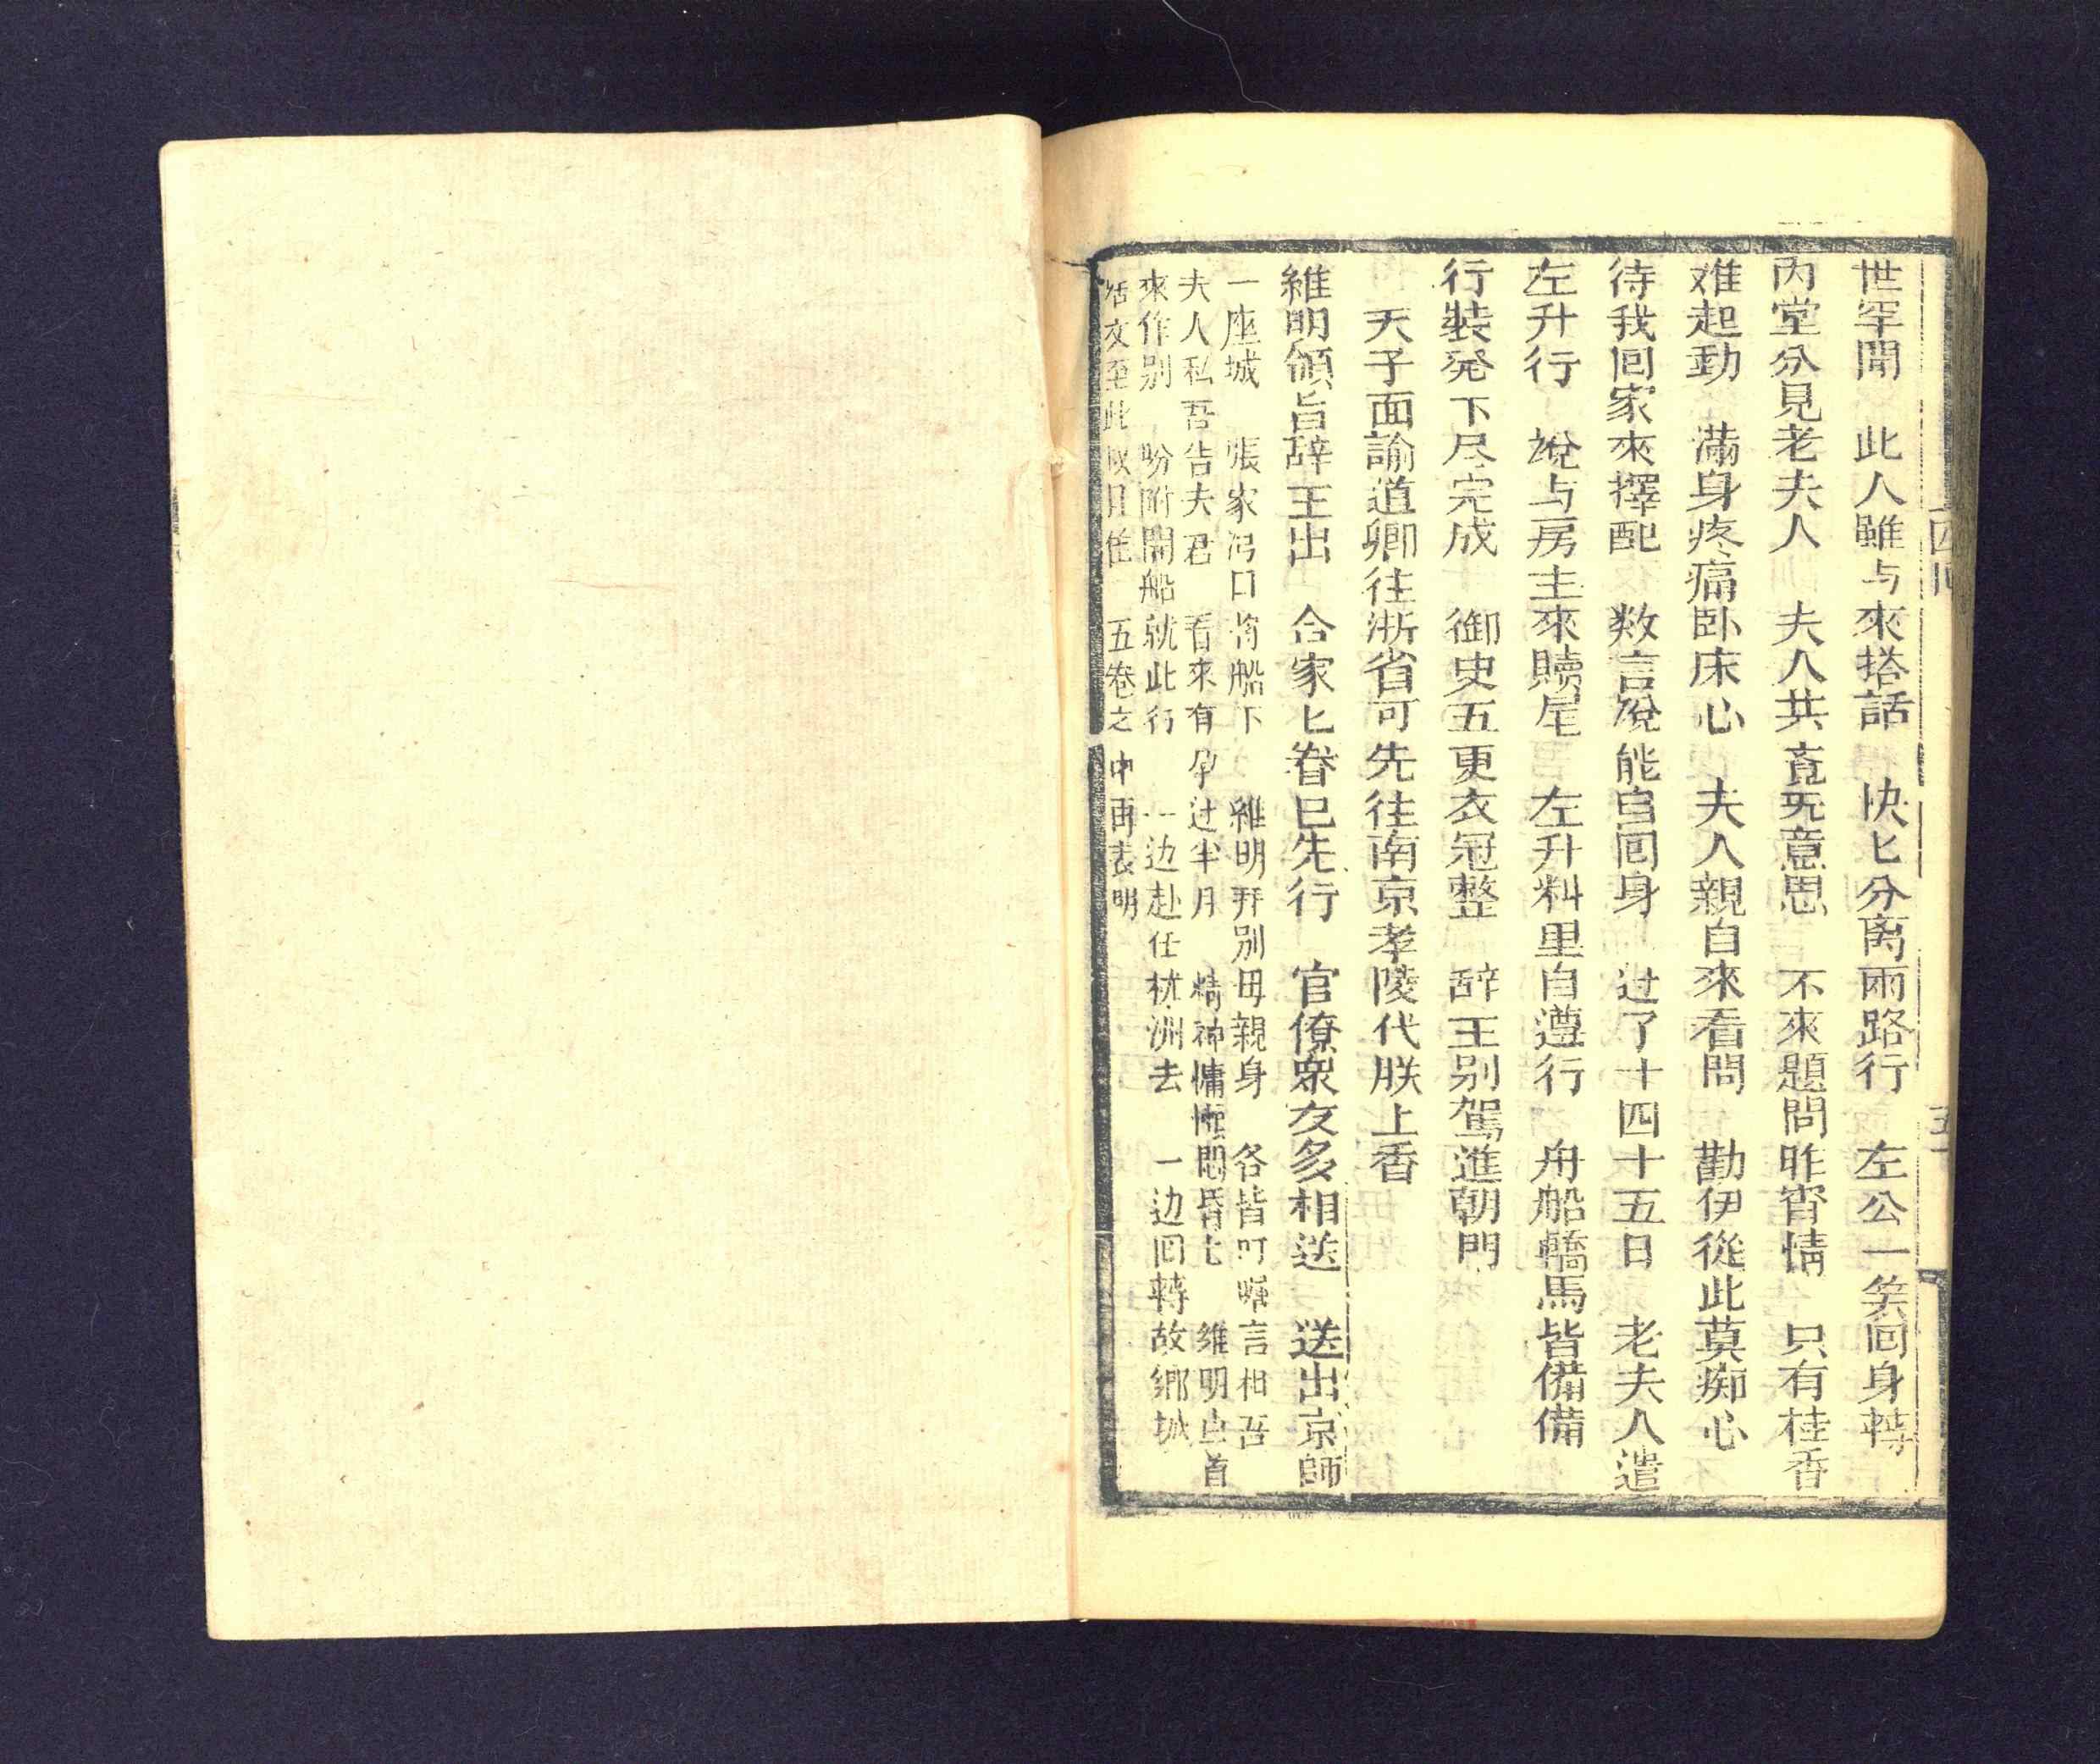 世罕聞　此人雖与來搭話　快匕分离雨路行　左公一笑回身轉
內堂分見老夫人　夫人共竟旡意思　不來題問昨宵情　只有桂香
难起動　滿身疼痛卧床心　夫人親自來看問　勸伊從此莫痴心
待我回家來擇配　数言說能自回身　过了十四十五日　老夫人遣
左升行　說与房主來贖屋　左升料里自遵行　舟船轎馬皆備備
行裝発下尽完成　御史五更衣冠整　辞王别駕進朝門
天子面諭道卿往浙省可先往南京孝陵代朕上香
維明領旨辞王出　合家匕眷巳先行　官僚衆友多相送　送出京師
一座城　張家湾口將船下　維明拜别母親身　各皆叮囑言相吾
夫人私吾告夫君　看來有孕过半月　精神慵懶悶昏匕　維明点首
來作别　吩咐開船就此行　一边赴任杭洲去　一边回轉故鄉城
話文至此　五卷之中再表明
四回
五